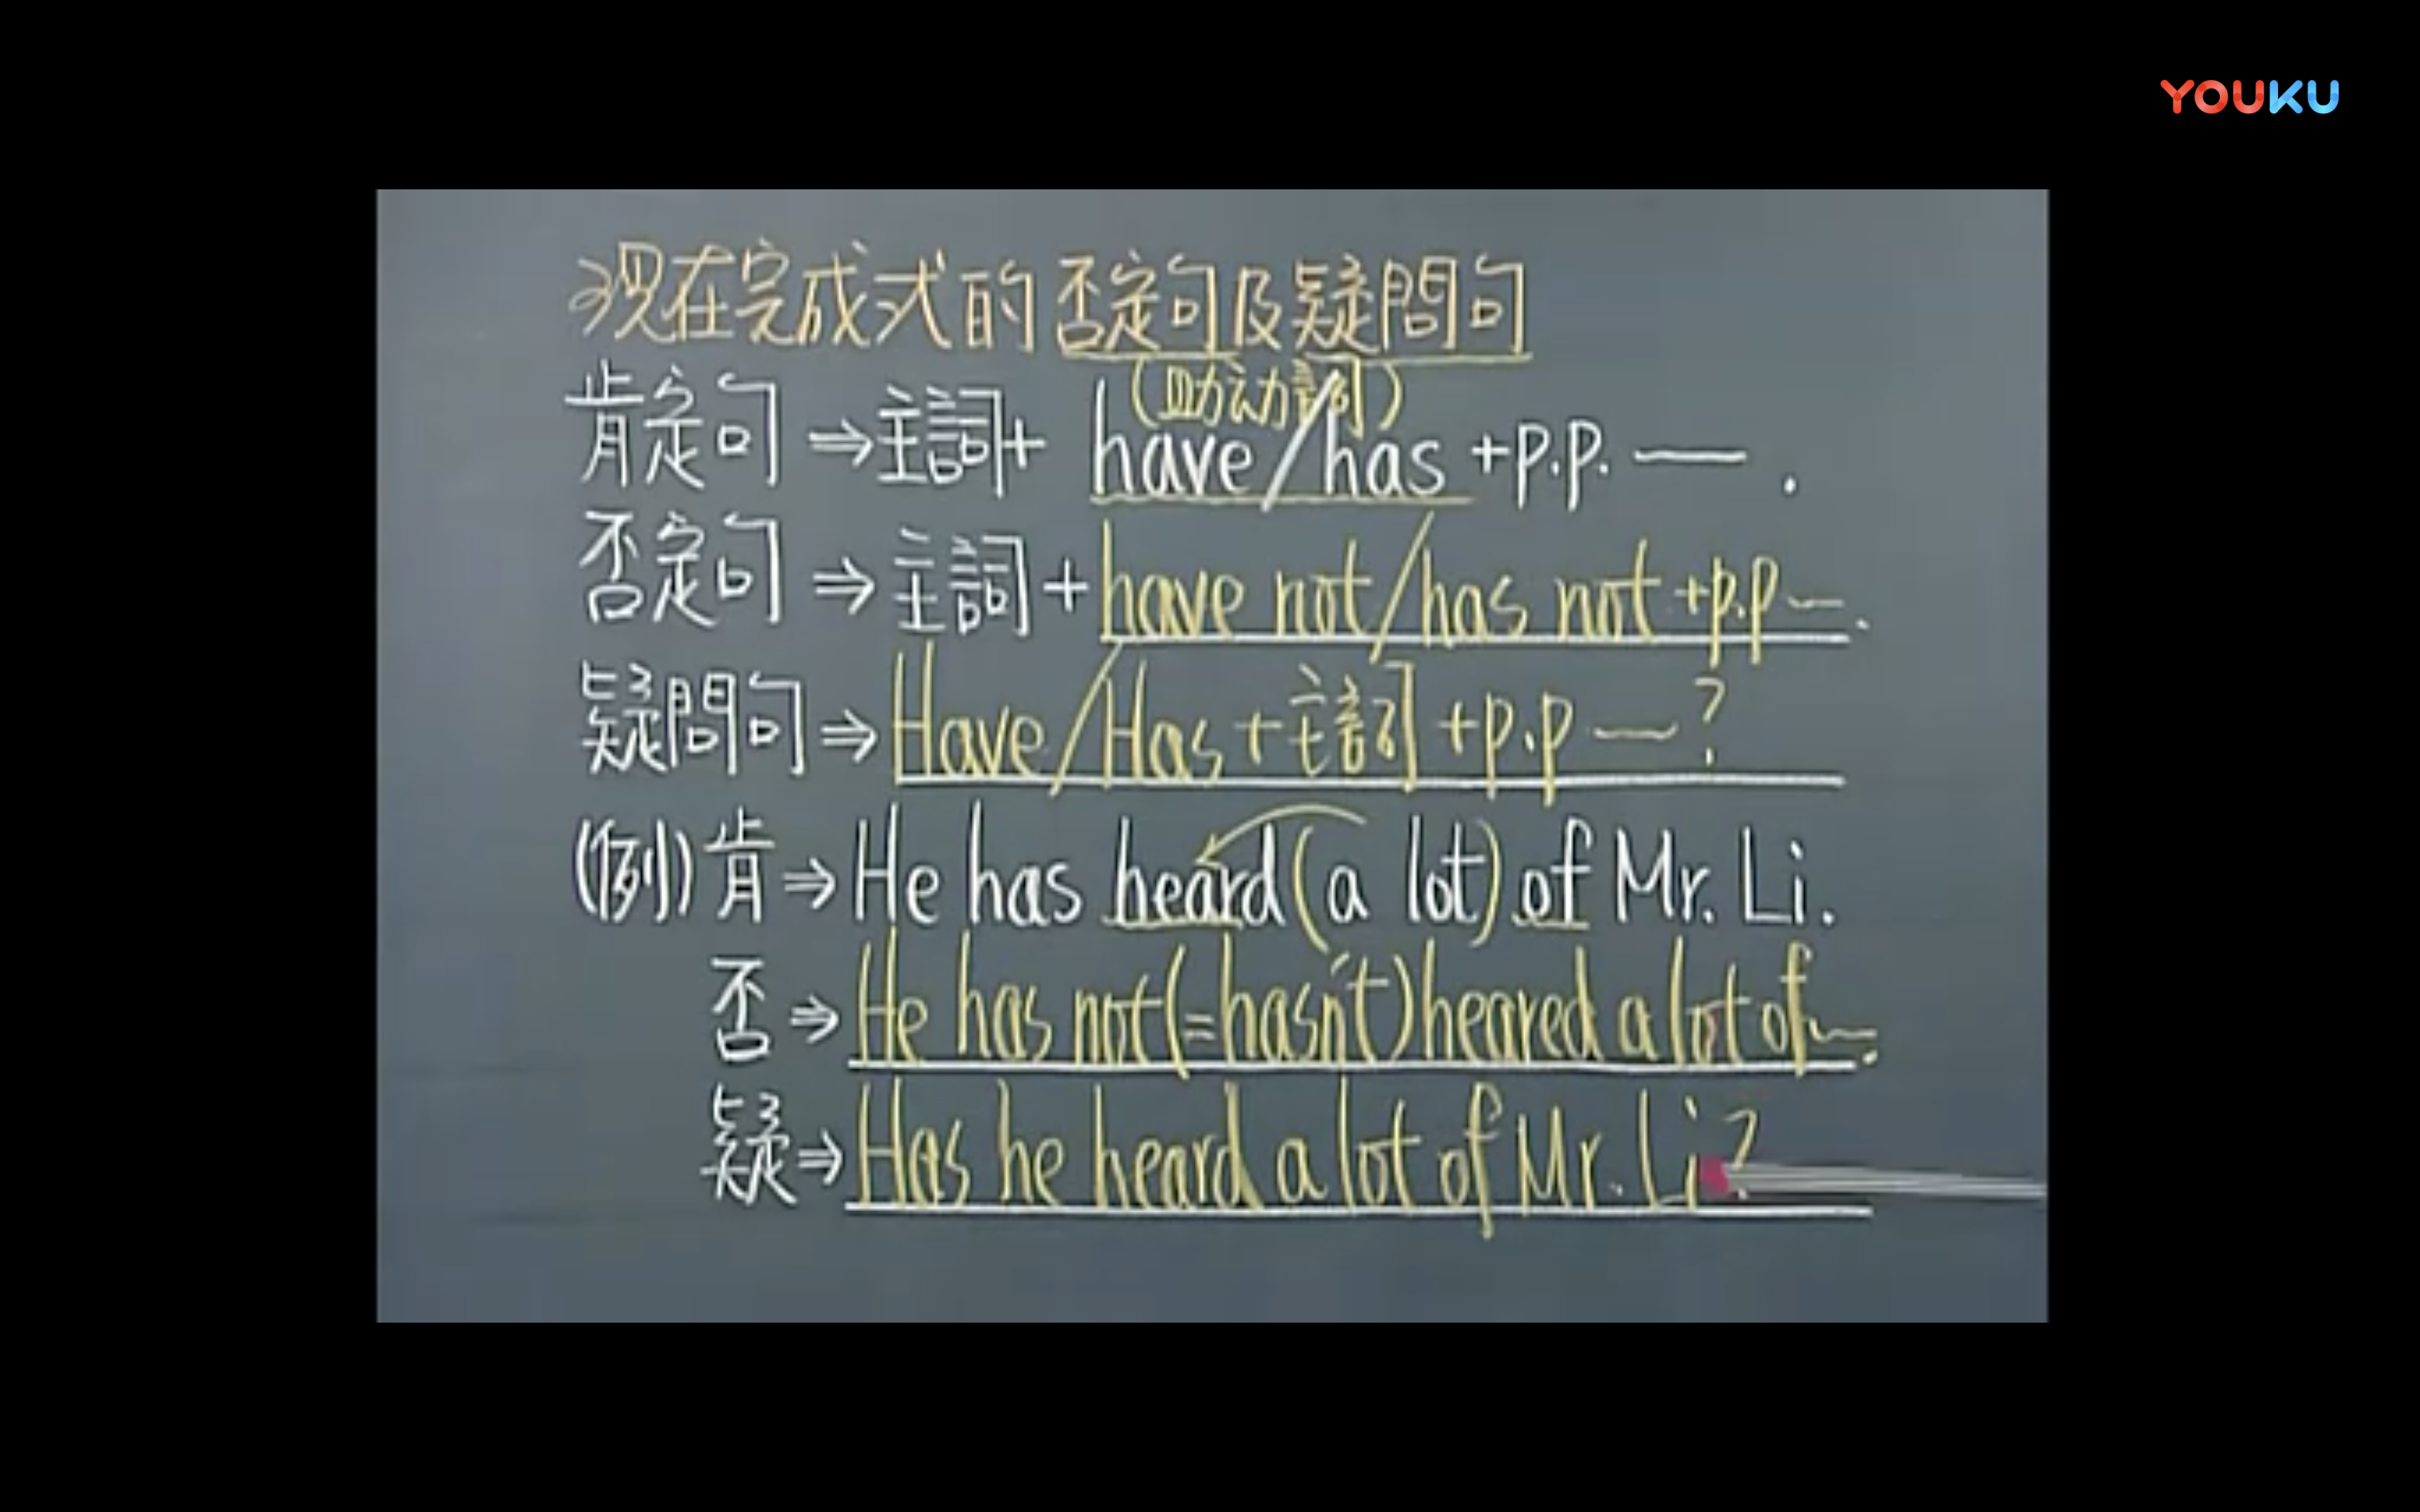 YOUKU
现在完成式的否定句及疑問句
(助动詞)
肯定句⇒主詞+ have/has +p.p. — .
否定句⇒主詞+have not/has not +p.p — .
疑問句⇒Have/Has+主詞+p.p — ?
(例)肯⇒He has heard (a lot) of Mr. Li.
否⇒He has not(=hasn't) heared a lot of~.
疑⇒Has he heard a lot of Mr. Li?